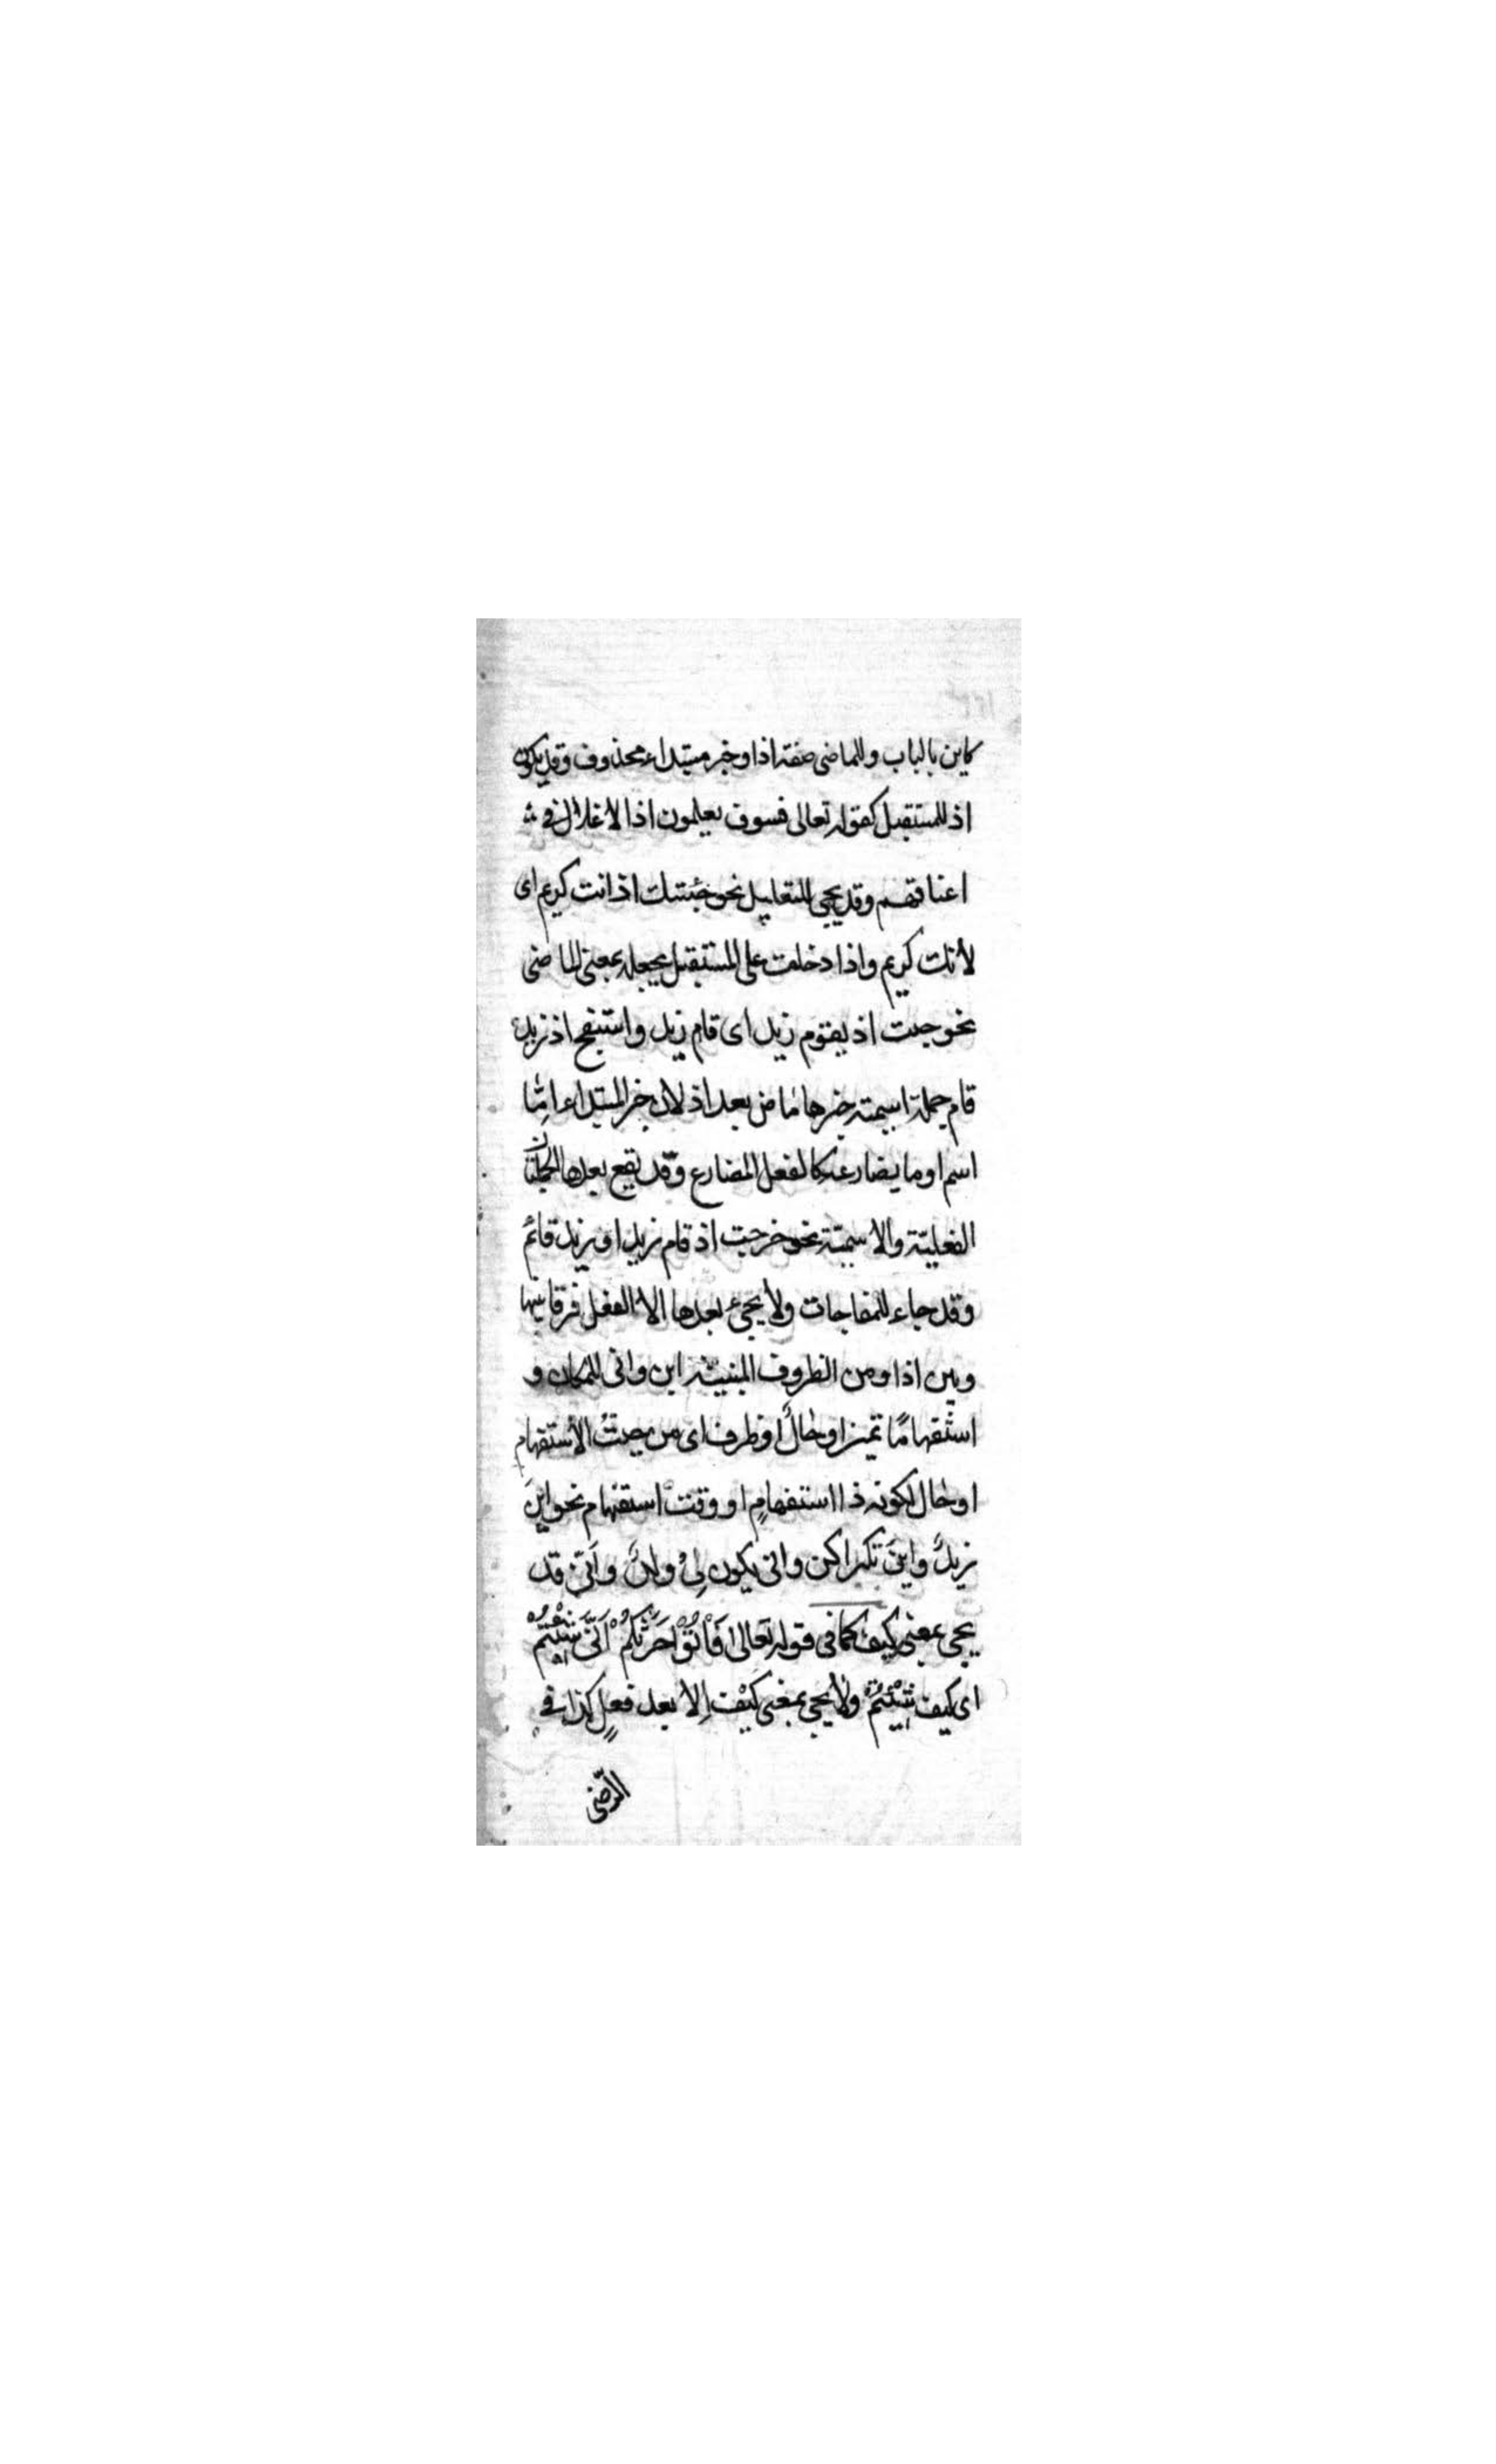 كاين بالباب وللماضى صفة اذا وخبر مبتداء محذوف وقد يكون
اذ للمستقبل كقوله تعالى فسوف يعلمون اذا الاغلال فى
اعناقهم وقد يجى للتعليل نحو جئتك اذ انت كريم اى
لأنك كريم واذا دخلت على المستقبل يجعله بمعنى الماضى
نحو جئت اذ يقوم زيد اى قام زيد واستقبح اذ زيد
قام جملة اسمية خبرها ماض بعد اذ لان خبر المبتداء امّا
اسم او ما يضارعه كالفعل المضارع وقد يقع بعدها الجملتان
الفعليّة والاسميّة نحو خرجت اذ قام زيد او زيد قائم
وقد جاء للمفاجات ولا يجئ بعدها الا الفعل فرقا بينها
وبين اذا ومن الظروف المبنيّة اين وانى للمكان و
استفهامًا تميزا وحالًا وظرف اى من حيث الاستفهام
او حال لكونه ذا استفهامٍ او وقت استفهام نحو اينَ
زيدٌ واينَ تكن اكن وانى يكون لىْ ولدٌ وأنّى قد
يجى بمعنى كيف كما فى قوله تعالى فَأْتُوْا حَرْثَكُمْ اَنّى شِئْتُمْ
اى كيف شِئْتُمْ ولا يجى بمعنى كَيْفَ اِلا بعد فعلٍ كذا فى
الرّضى